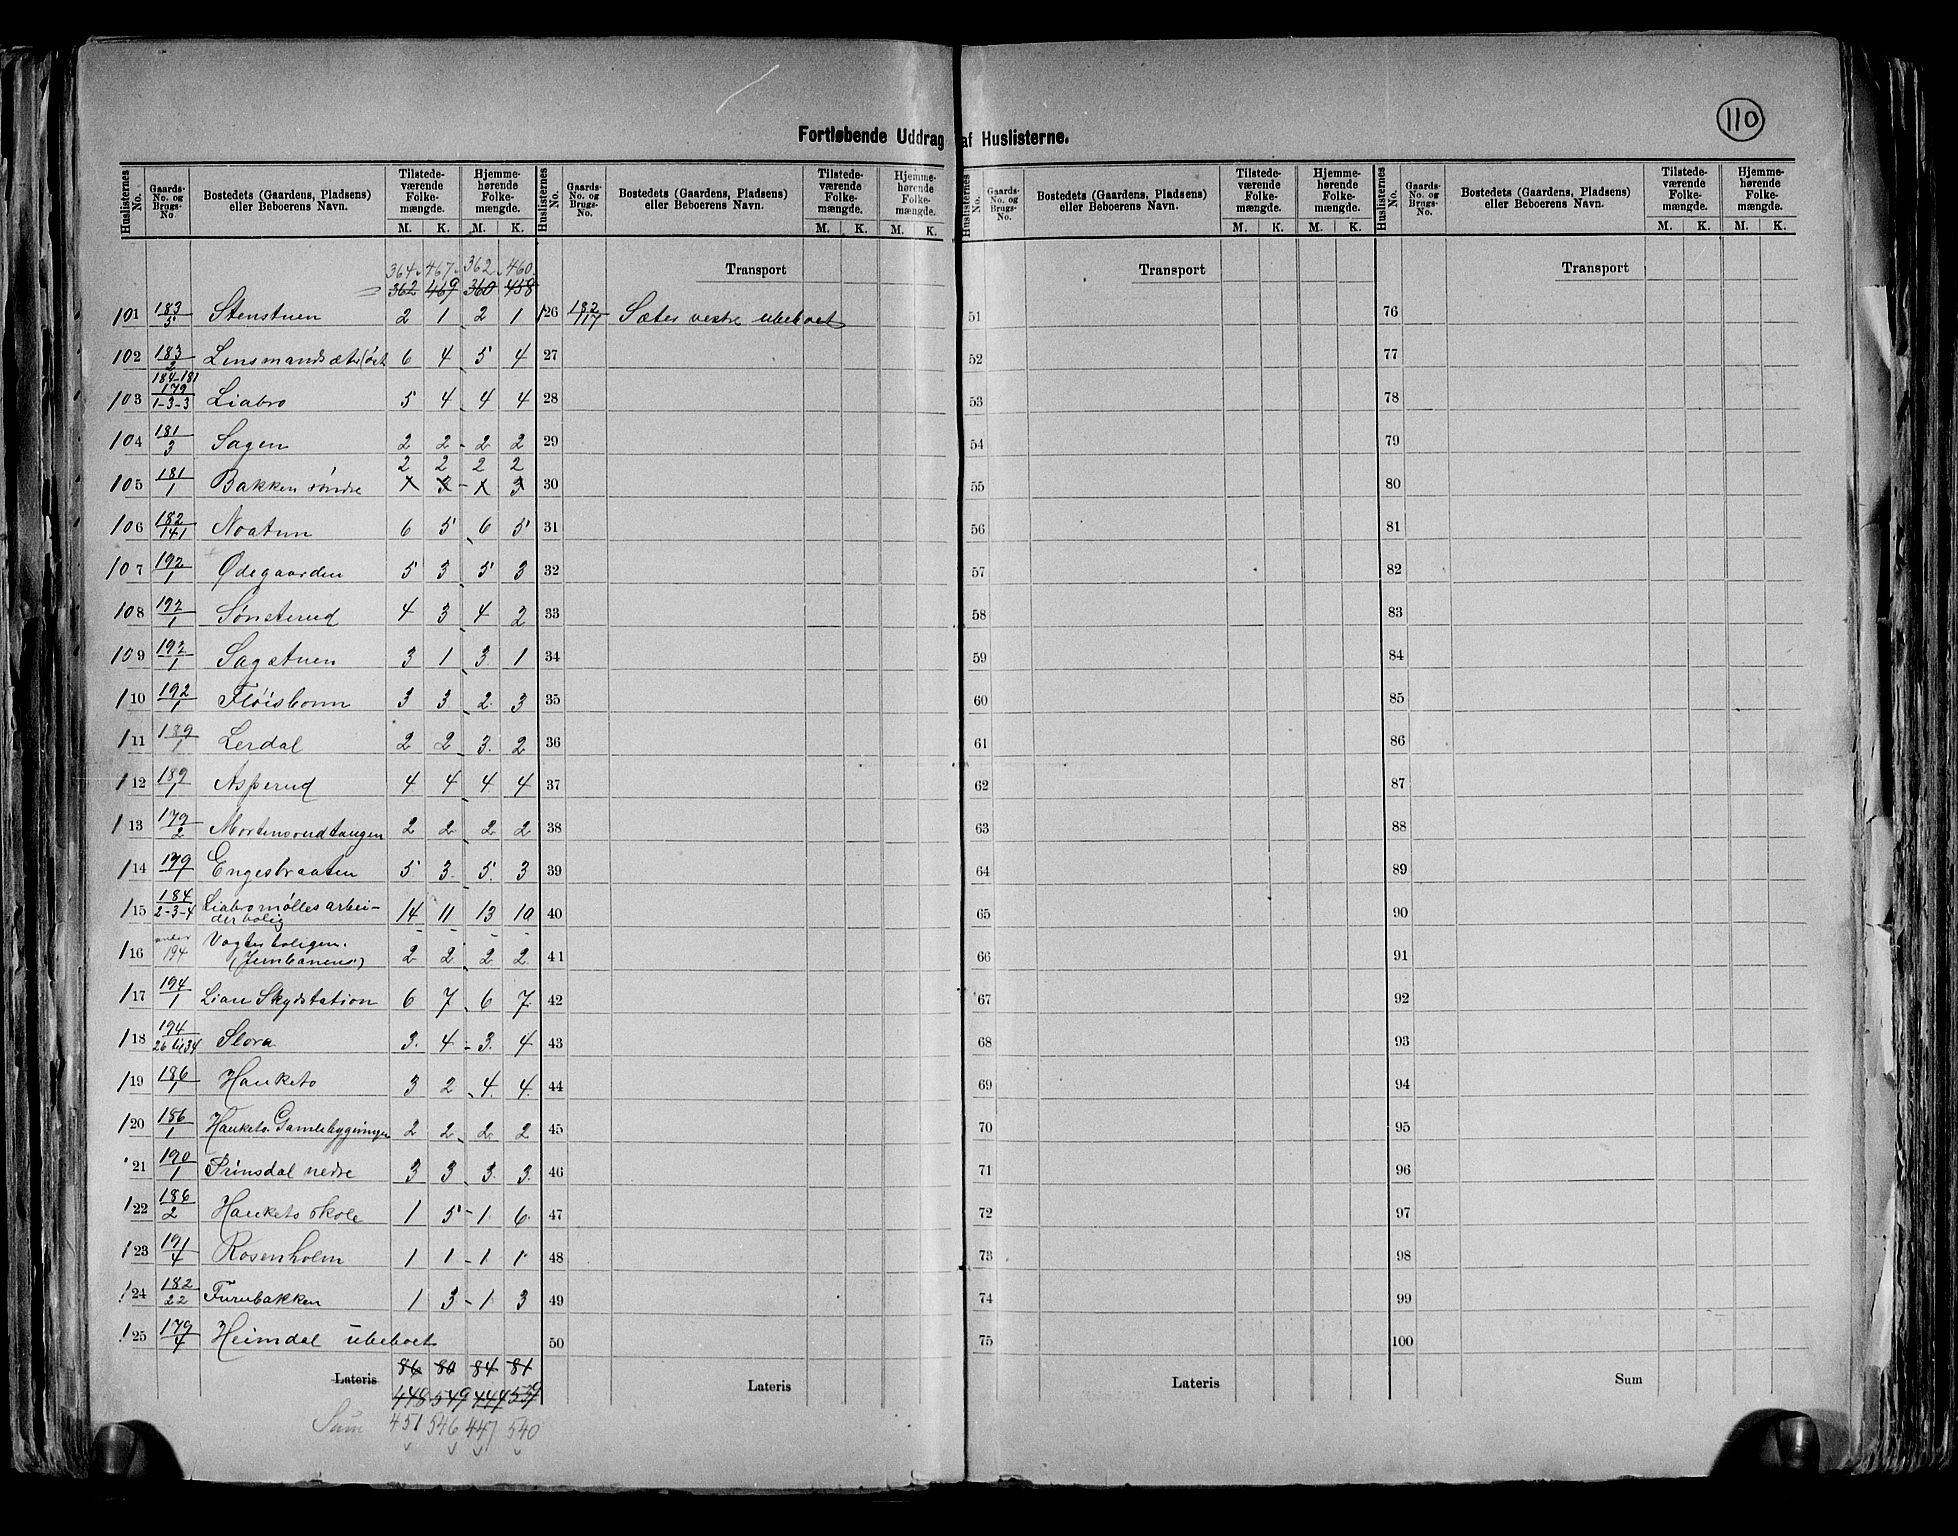 110
Fortløbende Uddrag af Huslisterne.
Huslisternes No. Gaards-No. og Brugs-No. Bostedets (Gaardens, Pladsens) eller Beboerens Navn. Tilstedeværende Folkemængde. M. K. Hjemmehørende Folkemængde. M. K.
Huslisternes No. Gaards-No. og Brugs-No. Bostedets (Gaardens, Pladsens) eller Beboerens Navn. Tilstedeværende Folkemængde. M. K. Hjemmehørende Folkemængde. M. K.
Huslisternes No. Gaards-No. og Brugs-No. Bostedets (Gaardens, Pladsens) eller Beboerens Navn. Tilstedeværende Folkemængde. M. K. Hjemmehørende Folkemængde. M. K.
Huslisternes No. Gaards-No. og Brugs-No. Bostedets (Gaardens, Pladsens) eller Beboerens Navn. Tilstedeværende Folkemængde. M. K. Hjemmehørende Folkemængde. M. K.
364 467 362 460 Transport Transport Transport
362 469 360 458
101 183/5 Stenstuen 2 1 2 1 126 182/117 Sæter vestre ubeboet 51 76
102 183/2 Lensmandsæter (øst 6 4 5 4 27 52 77
103 184-181 179/1-3-3 Liabro 5 4 4 4 28 53 78
104 181/3 Sagen 2 2 2 2 29 54 79
2 2 2 2
105 181/1 Bakken søndre 1 3 1 3 30 55 80
106 182/141 Noatun 6 5 6 5 31 56 81
107 192/1 Ødegaarden 5 3 5 3 32 57 82
108 192/1 Sønsterud 4 3 4 2 33 58 83
109 192/1 Sagstuen 3 1 3 1 34 59 84
110 192/1 Fløisbonn 3 3 2 3 35 60 85
111 189/1 Lerdal 2 2 3 2 36 61 86
112 189/1 Asperud 4 4 4 4 37 62 87
113 179/2 Mortensrudtangen 2 2 2 2 38 63 88
114 179/1 Engesbraaten 5 3 5 3 39 64 89
115 184/2-3-4 Liabromølles arbeiderbolig 14 11 13 10 40 65 90
116 under 194 Vogterboligen. (Jernbanens) 2 2 2 2 41 66 91
117 194/1 Lian Skydstation 6 7 6 7 42 67 92
118 194/26 til 34 Slora 3 4 3 4 43 68 93
119 186/1 Hauketo 3 2 4 4 44 69 94
120 186/1 Hauketo Gamlebygningen 2 2 2 2 45 70 95
121 190/1 Prinsdal nedre 3 3 3 3 46 71 96
122 186/2 Hauketo skole 1 5 1 6 47 72 97
123 191/4 Rosenholm 1 1 1 1 48 73 98
124 182/22 Furubakken 1 3 1 3 49 74 99
125 179/4 Heimdal ubeboet 50 75 100
Lateris 86 80 84 81 Lateris Lateris Sum
448 549 444 539
Sum 451 546 447 540